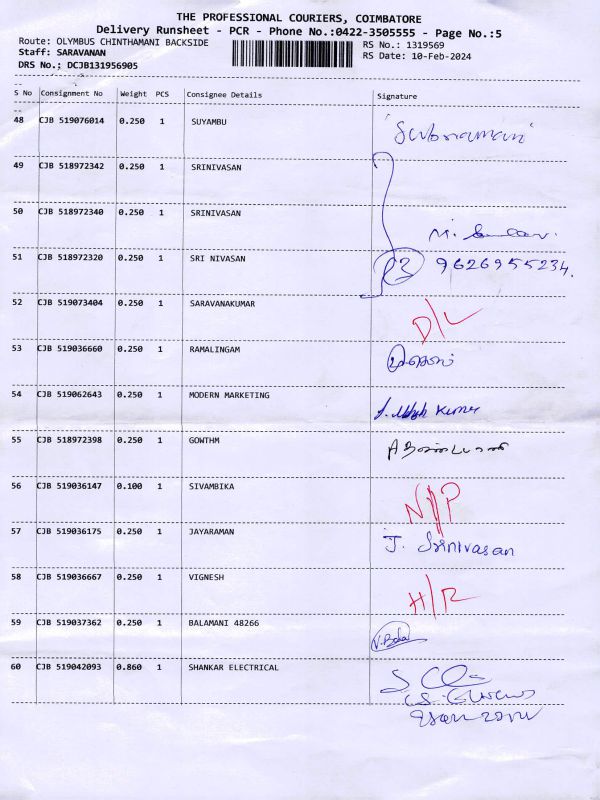 THE PROFESSIONAL COURIERS, COIMBATORE
Delivery Runsheet - PCR - Phone No.:0422-3505555 - Page No.:5
Route: OLYMBUS CHINTHAMANI BACKSIDE
RS No.: 1319569
Staff: SARAVANAN
RS Date: 10-Feb-2024
DRS No.; DCJB131956905
S No Consignment No Weight PCS Consignee Details Signature
48 CJB 519076014 0.250 1 SUYAMBU
49 CJB 518972342 0.250 1 SRINIVASAN
50 CJB 518972340 0.250 1 SRINIVASAN
51 CJB 518972320 0.250 1 SRI NIVASAN 9626955234.
52 CJB 519073404 0.250 1 SARAVANAKUMAR D/L
53 CJB 519036660 0.250 1 RAMALINGAM
54 CJB 519062643 0.250 1 MODERN MARKETING Kumar
55 CJB 518972398 0.250 1 GOWTHM
56 CJB 519036147 0.100 1 SIVAMBIKA N/P
57 CJB 519036175 0.250 1 JAYARAMAN J. Srinivasan
58 CJB 519036667 0.250 1 VIGNESH H/R
59 CJB 519037362 0.250 1 BALAMANI 48266
60 CJB 519042093 0.860 1 SHANKAR ELECTRICAL